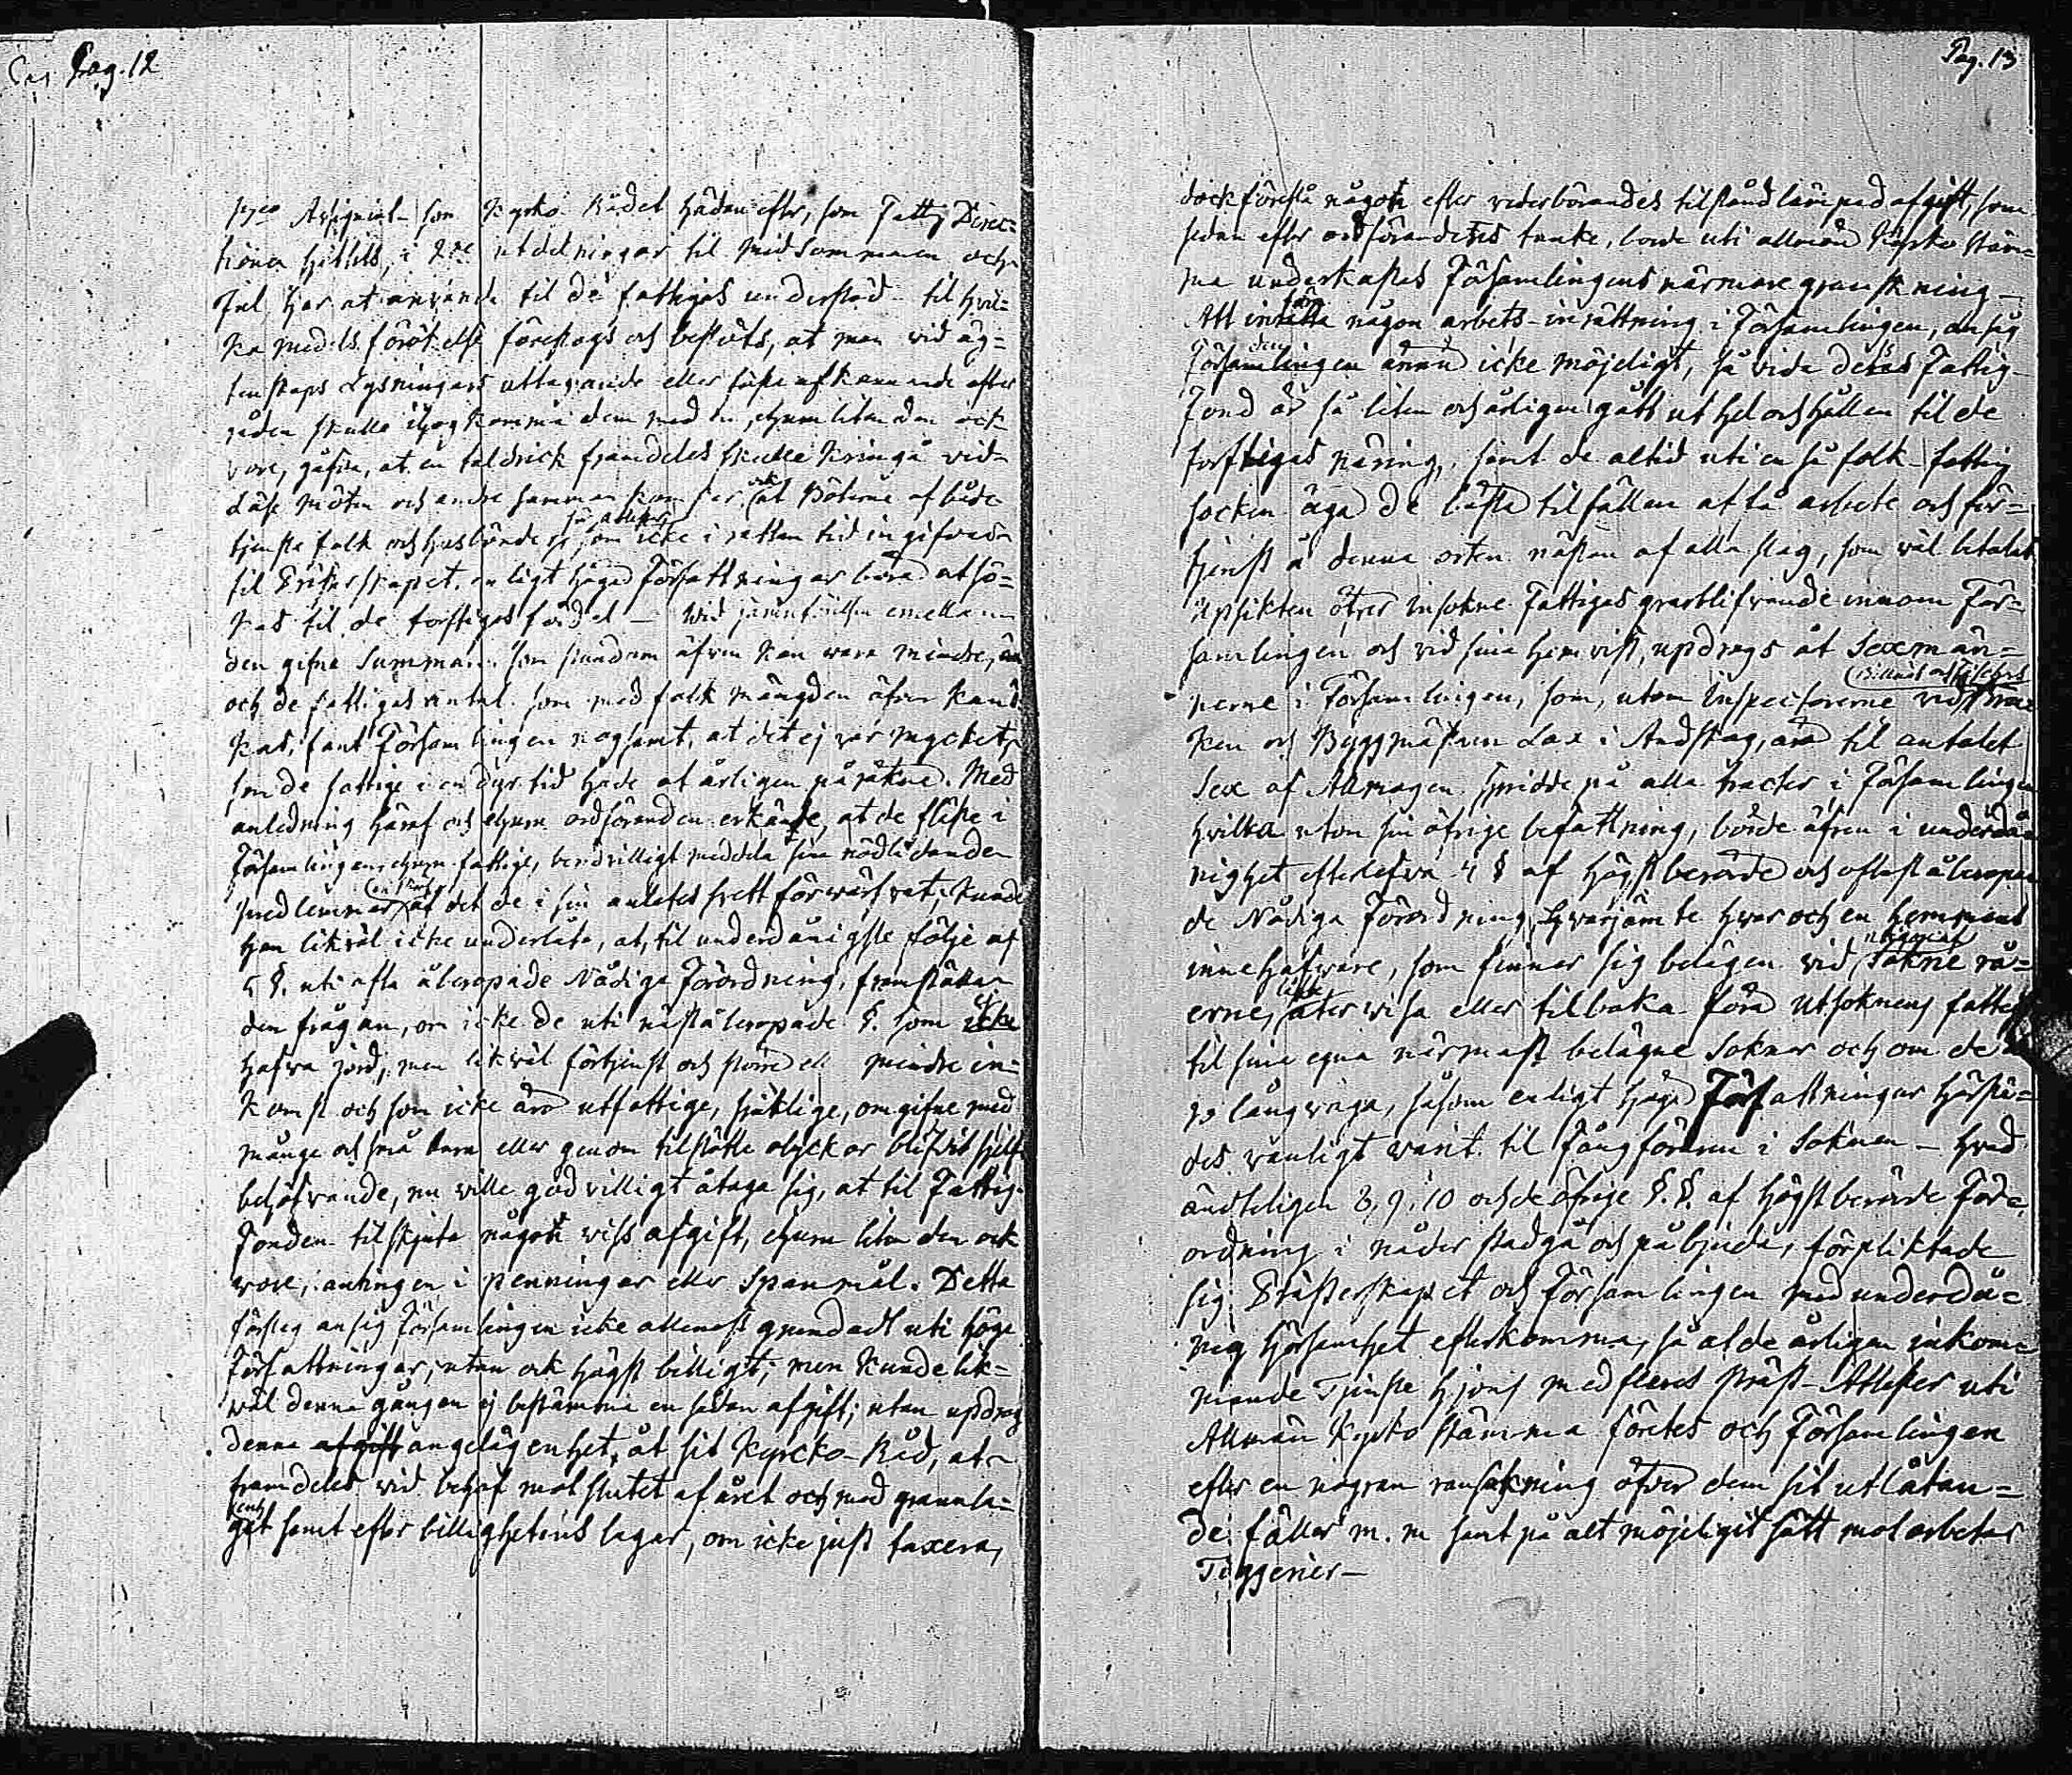 Pag. 12
Assignat som Kyrko Rådet hädanefter, som Fattig Direc=
tioner hittils, i utdelningar til Midsommaren och
Jul har at använda til de fattigas understöd til hvil=
ka medels förökelse föreslogs och beslöts, at man vid äg=
tenskaps Lysningars uttagande eller efter
skulle ihogkomma dem med en, ehuru liten den ock
vore, gåfva, at en taldrick framdeles skulle kringå vid
Läse möten och andra samman komster ock at Böterne af både
tjenste folk och husbönder som så attester icke i rättan tid ingifvas
til Prästerskapet enligt höga Författningar böra utsö=
kas til de torftigas fördel - Vid jämförelsen emellan
den gifne Summan som stundom äfven kan vara mindre, än
och de fattigas antal som med folk mängden äfven kan
kas, fant Församlingen nogsamt, at det ej var mycket
som de fattige i en dyr tid hade at årligen påräkna. Med
anledning häraf och ehuru ordföranden erkände, at de fläste i
Församlingen ehuru fattige, benävilligt meddela sina nödlidande
medlemmar af det de i sin anletes svett förvärfvat, kunde
han likväl icke underlåta, at, til underdånigste följe af
5 §. uti ofta åberopade Nådiga Förordning, framställa
den frågan, om icke de uti näst åberopade §. som ej
hafva jord, men likväl förtjenst och större ell mindre in=
komst och som icke äro utfattige, sjuklige, omgifne med
många och små barn eller genom tilstötte olyckor blifvit hjelp
behöfvande, nu ville godvilligt åtaga sig, at til Fattig-
Fonden tilskjuta någon viss afgift, ehuru liten den ock
vore, antingen i penningar eller Spanmål. Detta
förslag ansåg Församlingen icke allenast grundadt uti höga
Författningar, utan ock högst billigt; men kunde lik=
väl denna gången ej bestämma en sådan afgift; utan updrog
denna afgift angelägenhet, åt sit Kyrcko-Råd, at
framdeles vid behof mot slutet af året och med grannla=
genhet samt efter billighetens lagar, om icke just taxera,
Pag. 13
dock föreslå någon efter vederbörandes tilstånd lämpad afgift, som
sedan efter ordförandens tanke, borde uti allmän Kyrko stäm=
ma underkastas Församlingens närmare granskning
Att inrätta någon arbets-inrättning i Församlingen, ansåg
Församlingen ännu icke möjeligt, så vida dess Fattig
Fond är så liten och årligen gått ut hel och hållen til de
torftigas näring, samt de altid uti en så folk-fattig
socken äga de bästa tilfällen at få arbete och för=
tjenst å denna orten nästan af alla slag, som väl betalas
Upsikten öfver Insokne Fattigas qvarblifvande innom För=
samlingen och vid sina hemvist, updrogs åt Sexmän=
nerne i Församlingen, som, utom Inspectorerne vid
ken och Byggmästaren Lax i Andskog, äro til antalet
Sex af Allmogen spridde på alla tracter i Församlingen
hvilka utom sin öfrige befattning, borde äfven i underdå=
nighet efterlefva 4 § af Högstberörde och oftast åberopa=
de Nådiga Förordning, hvarjämte hvar och en hemmans
innehafvare, som finner sig belägen vid utgången af Sokne rå=
erne, återvisa eller tilbaka föra Utsoknens fattige
til sina egna närmast belägne Soknar och om de ä
ro långväga, såsom enligt höga Författningar härstä=
des vanligt varit til Fångförarn i Soknen - Hvad
ändteligen 8, 9, 10 och de öfrige §.§. af Högstberörde För=
ordning i nåder stadga och påbjuda, förpliktade
sig Prästerskapet och Församlingen med underdå=
nig hörsamhet efterkomma, så at de årligen inkom=
mande Tjenste hjons medförde Präst-Attester uti
Allmän Kyrko stämma företes och Församlingen
efter en nogran ransakning öfver dem sit utlåtan=
de fäller m. m samt på alt möjeligit sätt motarbetar
Tiggerier-